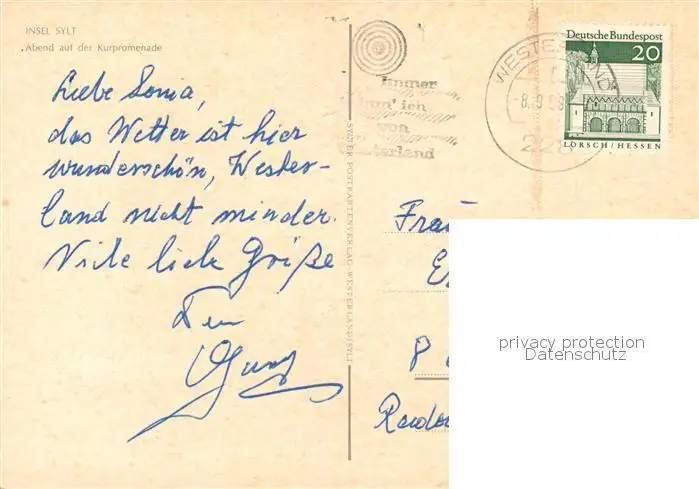 INSEL SYLT
Abend auf der Kurpromenade
Liebe Sonia,
das Wetter ist hier
wunderschön, Wester-
land nicht minder.
Viele liebe Grüße
SYLTER POSTKARTENVERLAG WESTERLAND/SYLT
immer
ich
von
sterland
WESTERLAND
Deutsche Bundespost
20
LORSCH / HESSEN
Frau
privacy protection
Datenschutz